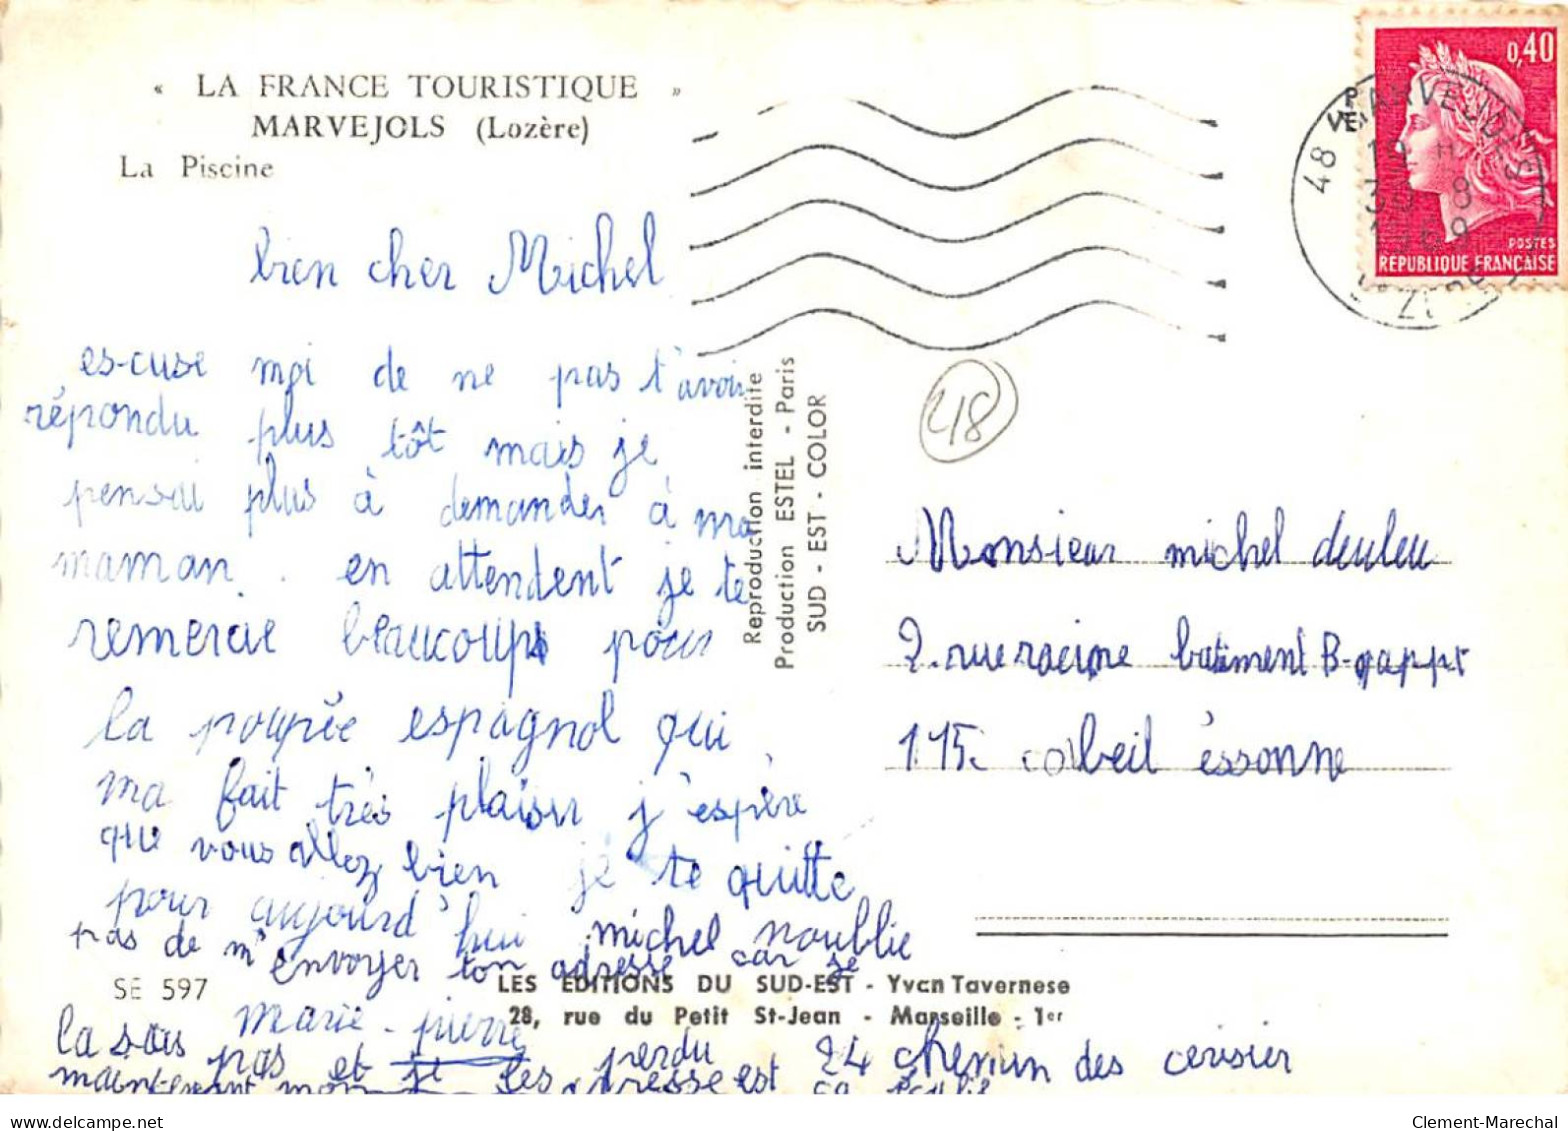 « LA FRANCE TOURISTIQUE »
MARVEJOLS (Lozère)
La Piscine
0,40
POSTES
REPUBLIQUE FRANÇAISE
48 MARVEJOLS
30 8
1969
LOZERE
bien cher Michel
es-cuse moi de ne pas t'avoir
répondu plus tôt mais je
pensai plus à demander à ma
maman. en attendent je te
remercie beaucoups pour
la poupée espagnol qui
ma fait très plaisir j'espère
que vous allez bien je te quitte
pour aujourd'hui michel n'oublie
pas de m'envoyer ton adresse car je
marie-pierre
la sais pas et je les perdu
maintenant mon adresse est
24 chemin des cerisier
Reproduction interdite
Production ESTEL - Paris
SUD - EST - COLOR
48
Monsieur michel
2. rue racine batiment B-appt
115. corbeil éssonne
SE 597
LES EDITIONS DU SUD-EST - Yvan Tavernese
28, rue du Petit St-Jean - Marseille - 1er
delcampe.net
Clement-Marechal